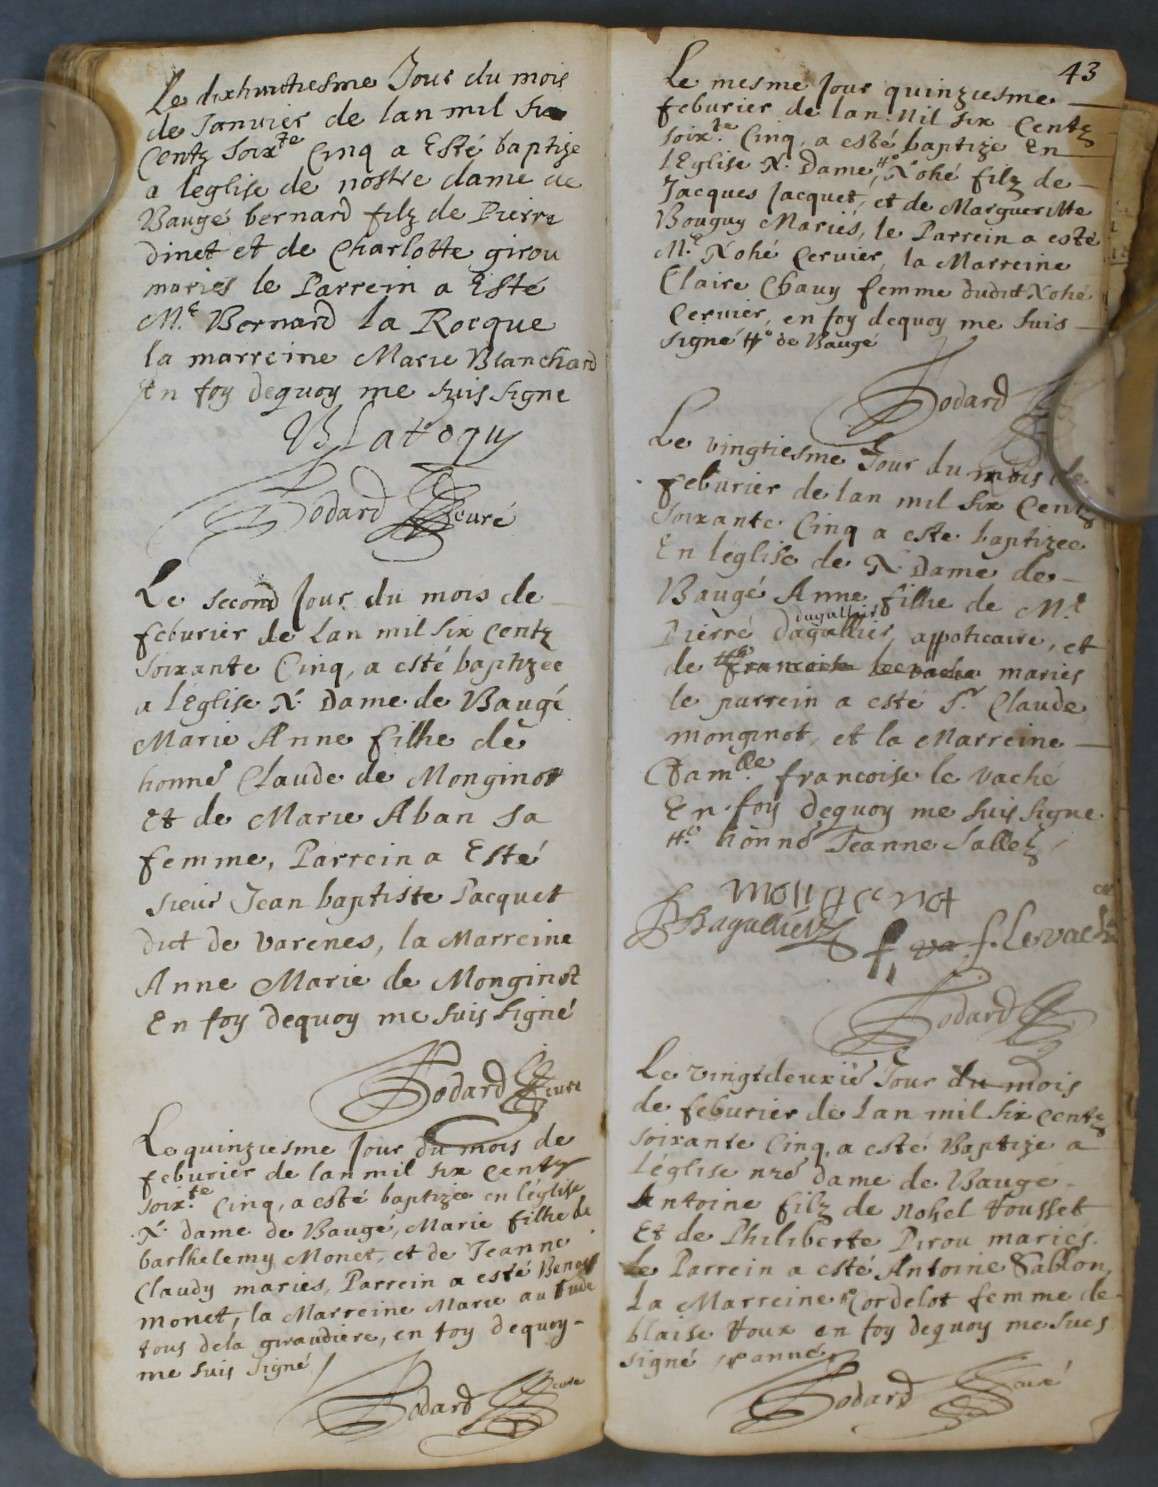 Le dixhuictiesme Jour du mois
de Janvier de lan mil six
Centz Soixte Cinq a Esté baptizé
a leglise de nostre dame de
Baugé bernard filz de Pierre
dinet et de Charlotte girou
mariés le Parrein a Esté
Me Bernard la Rocque
la marreine Marie Blanchard
En foy dequoy me suis signe
B Laroqu
Dodard curé
Le second Jour du mois de
feburier de Lan mil six Centz
soixante Cinq, a esté baptizée
a lEglise N. Dame de Baugé
Marie Anne filhe de
honne Claude de Monginot
Et de Marie Aban sa
femme, Parrein a Esté
sieur Jean baptiste Jacquet
dict de Varenes, la Marreine
Anne Marie de Monginot
En foy dequoy me suis signé
Dodard curé
Le quinziesme Jour du mois de
feburier de lan mil six Centz
soixte Cinq, a esté baptizée en léglise
N. dame de Baugé, Marie filhe de
barthelemy Monet, et de Jeanne
Claudy mariés, Parrein a esté Benoist
monet, la Marreine Marie
tous de la giraudiere, en foy dequoy
me suis signé
Dodard curé
43
Le mesme Jour quinziesme
feburier de lan Mil six Centz
soixte Cinq, a esté baptizé En
lEglise N. Dame, # Nohé filz de
Jacques Jacquet, et de Margueritte
Bouguy Mariés, le Parrein a esté
Me Nohé Cervier, la Marreine
Claire Chauy femme dudict Nohé
Cervier, en foy dequoy me suis
signé # de Baugé
Dodard
Le vingtiesme Jour du mois de
feburier de lan mil six Centz
soixante Cinq a esté baptizée
En leglise de N. Dame de
Baugé Anne filhe de Me
dagallier
Pierre Dagallier, appoticaire, et
de # francoise le vaché mariés
le parrein a esté Sr Claude
monginot, et la Marreine
Damlle francoise le vaché
En foy dequoy me suis signe
# honne Jeanne Sallez
monginot
Dagallier f. va f. Levaché
Dodard
Le vingtdeuxie Jour du mois
de feburier de Lan mil six centz
soixante Cinq, a esté Baptizé a
léglise nre dame de Baugé
Antoine filz de Nohel Housset
Et de Philiberte Pirou mariés.
Le Parrein a esté Antoine Sablon,
La Marreine # Cordelot femme de
blaise Houx en foy dequoy me suis
signé # anne
Dodard curé